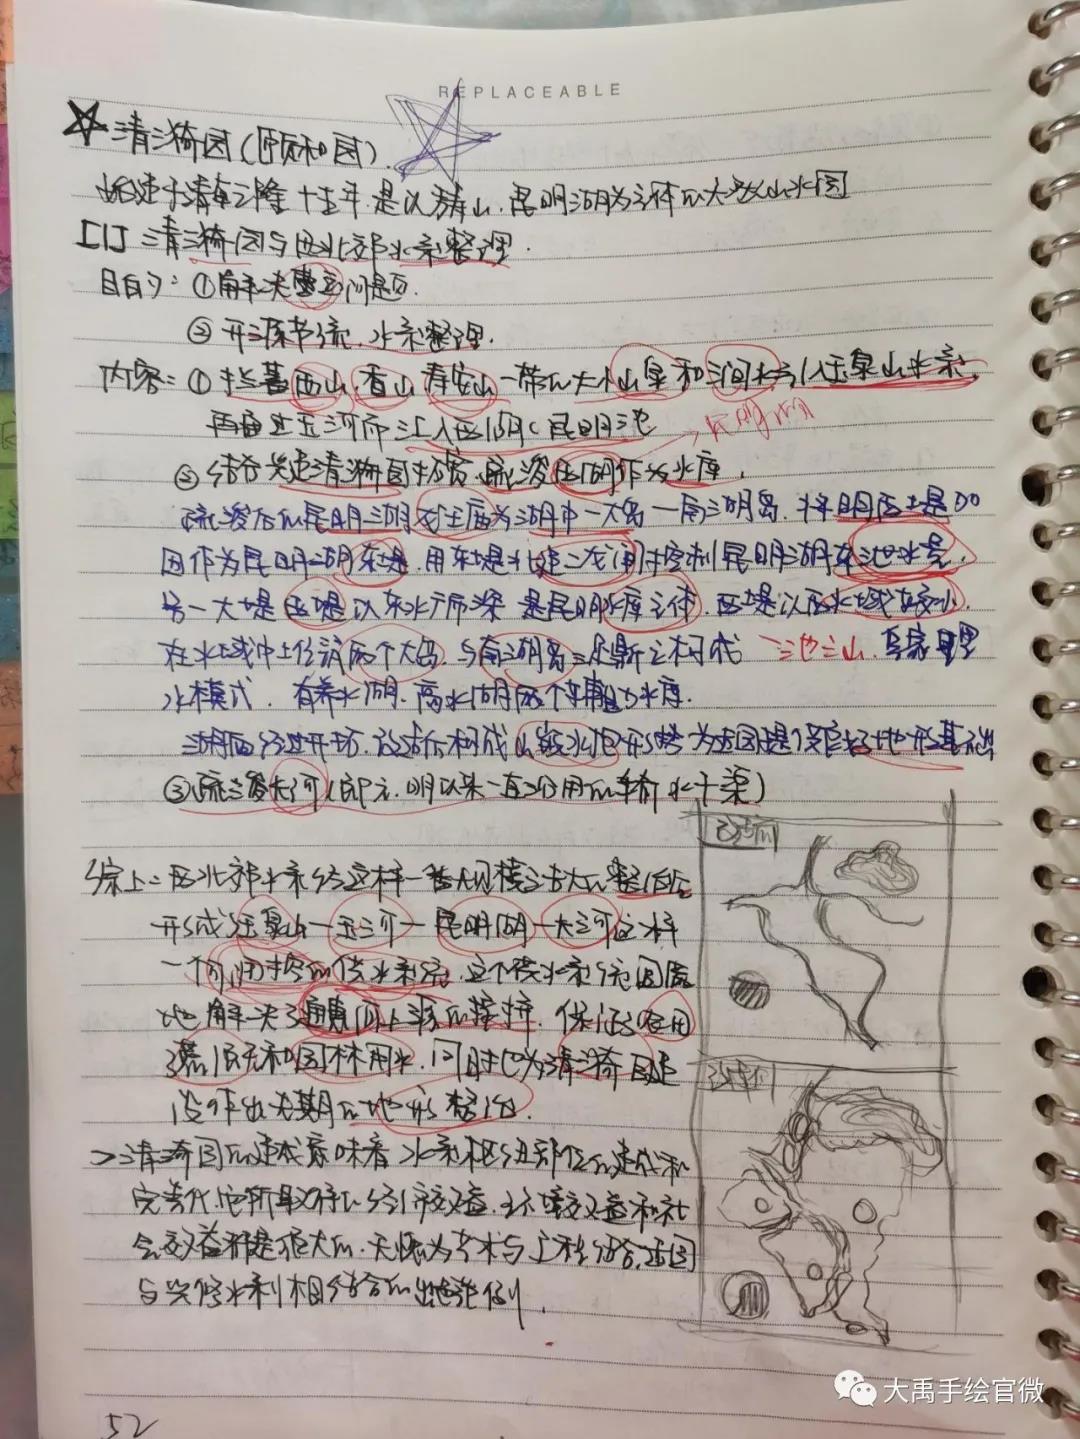 REPLACEABLE
清漪园(颐和园).
始建于清乾隆十五年,是以万寿山,昆明湖为主体的大型山水园
[1] 清漪园与西北郊水系整理.
目的: ①解决漕运问题.
②开源节流,水系整理.
内容: ①拦蓄西山,香山寿安山一带的大小山泉和涧水引入玉泉山水系,
再由玉河而汇入西湖(昆明池
昆明湖
②结合兴建清漪园拓宽,疏浚西湖作为水库,
疏浚后的昆明湖龙王庙为湖中一大岛—南湖岛,将
因作为昆明湖东堤,用东堤北建二龙闸控制昆明湖东泄水量,
另一大堤西堤以东水广而深是昆明水库主体,西堤以西水域较小.
在水域中上各设两个大岛,与南湖岛三足鼎立构成 一池三山,
水模式,有养水湖,高水湖两个辅助水库.
湖面经过开拓,改造后构成山嵌水抱形势为建园提供良好地形基础
③疏浚长河(即元,明以来一直沿用的输水干渠)
改造前
综上:西北郊水系经这样一番大规模浩大的整治后,
形成玉泉山—玉河—昆明湖—长河这样
一个可控的供水系统,这个供水系统圆满
地解决了通惠河上源的接济,保证了农田
灌溉和园林用水,同时也为清漪园建
设作出先期的地形整治.
改造后
>清漪园的建成意味着水系枢纽部位的建成和
完善化,它所取得的经济效益,环境效益和社
会效益都是很大的,无愧为艺术与工程结合,造园
与兴修水利相结合的出色范例.
52
大禹手绘官微